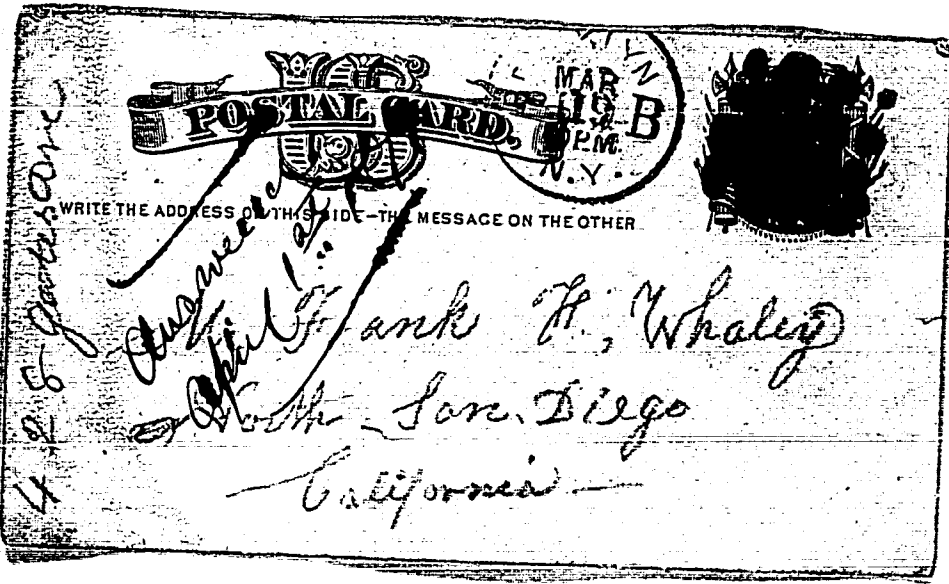 POSTAL CARD.
YN
MAR
19
6 PM.
B
N.Y.
WRITE THE ADDRESS ON THIS SIDE–THE MESSAGE ON THE OTHER
Answered
April 1st
Frank H. Whaley
North San Diego
California
428